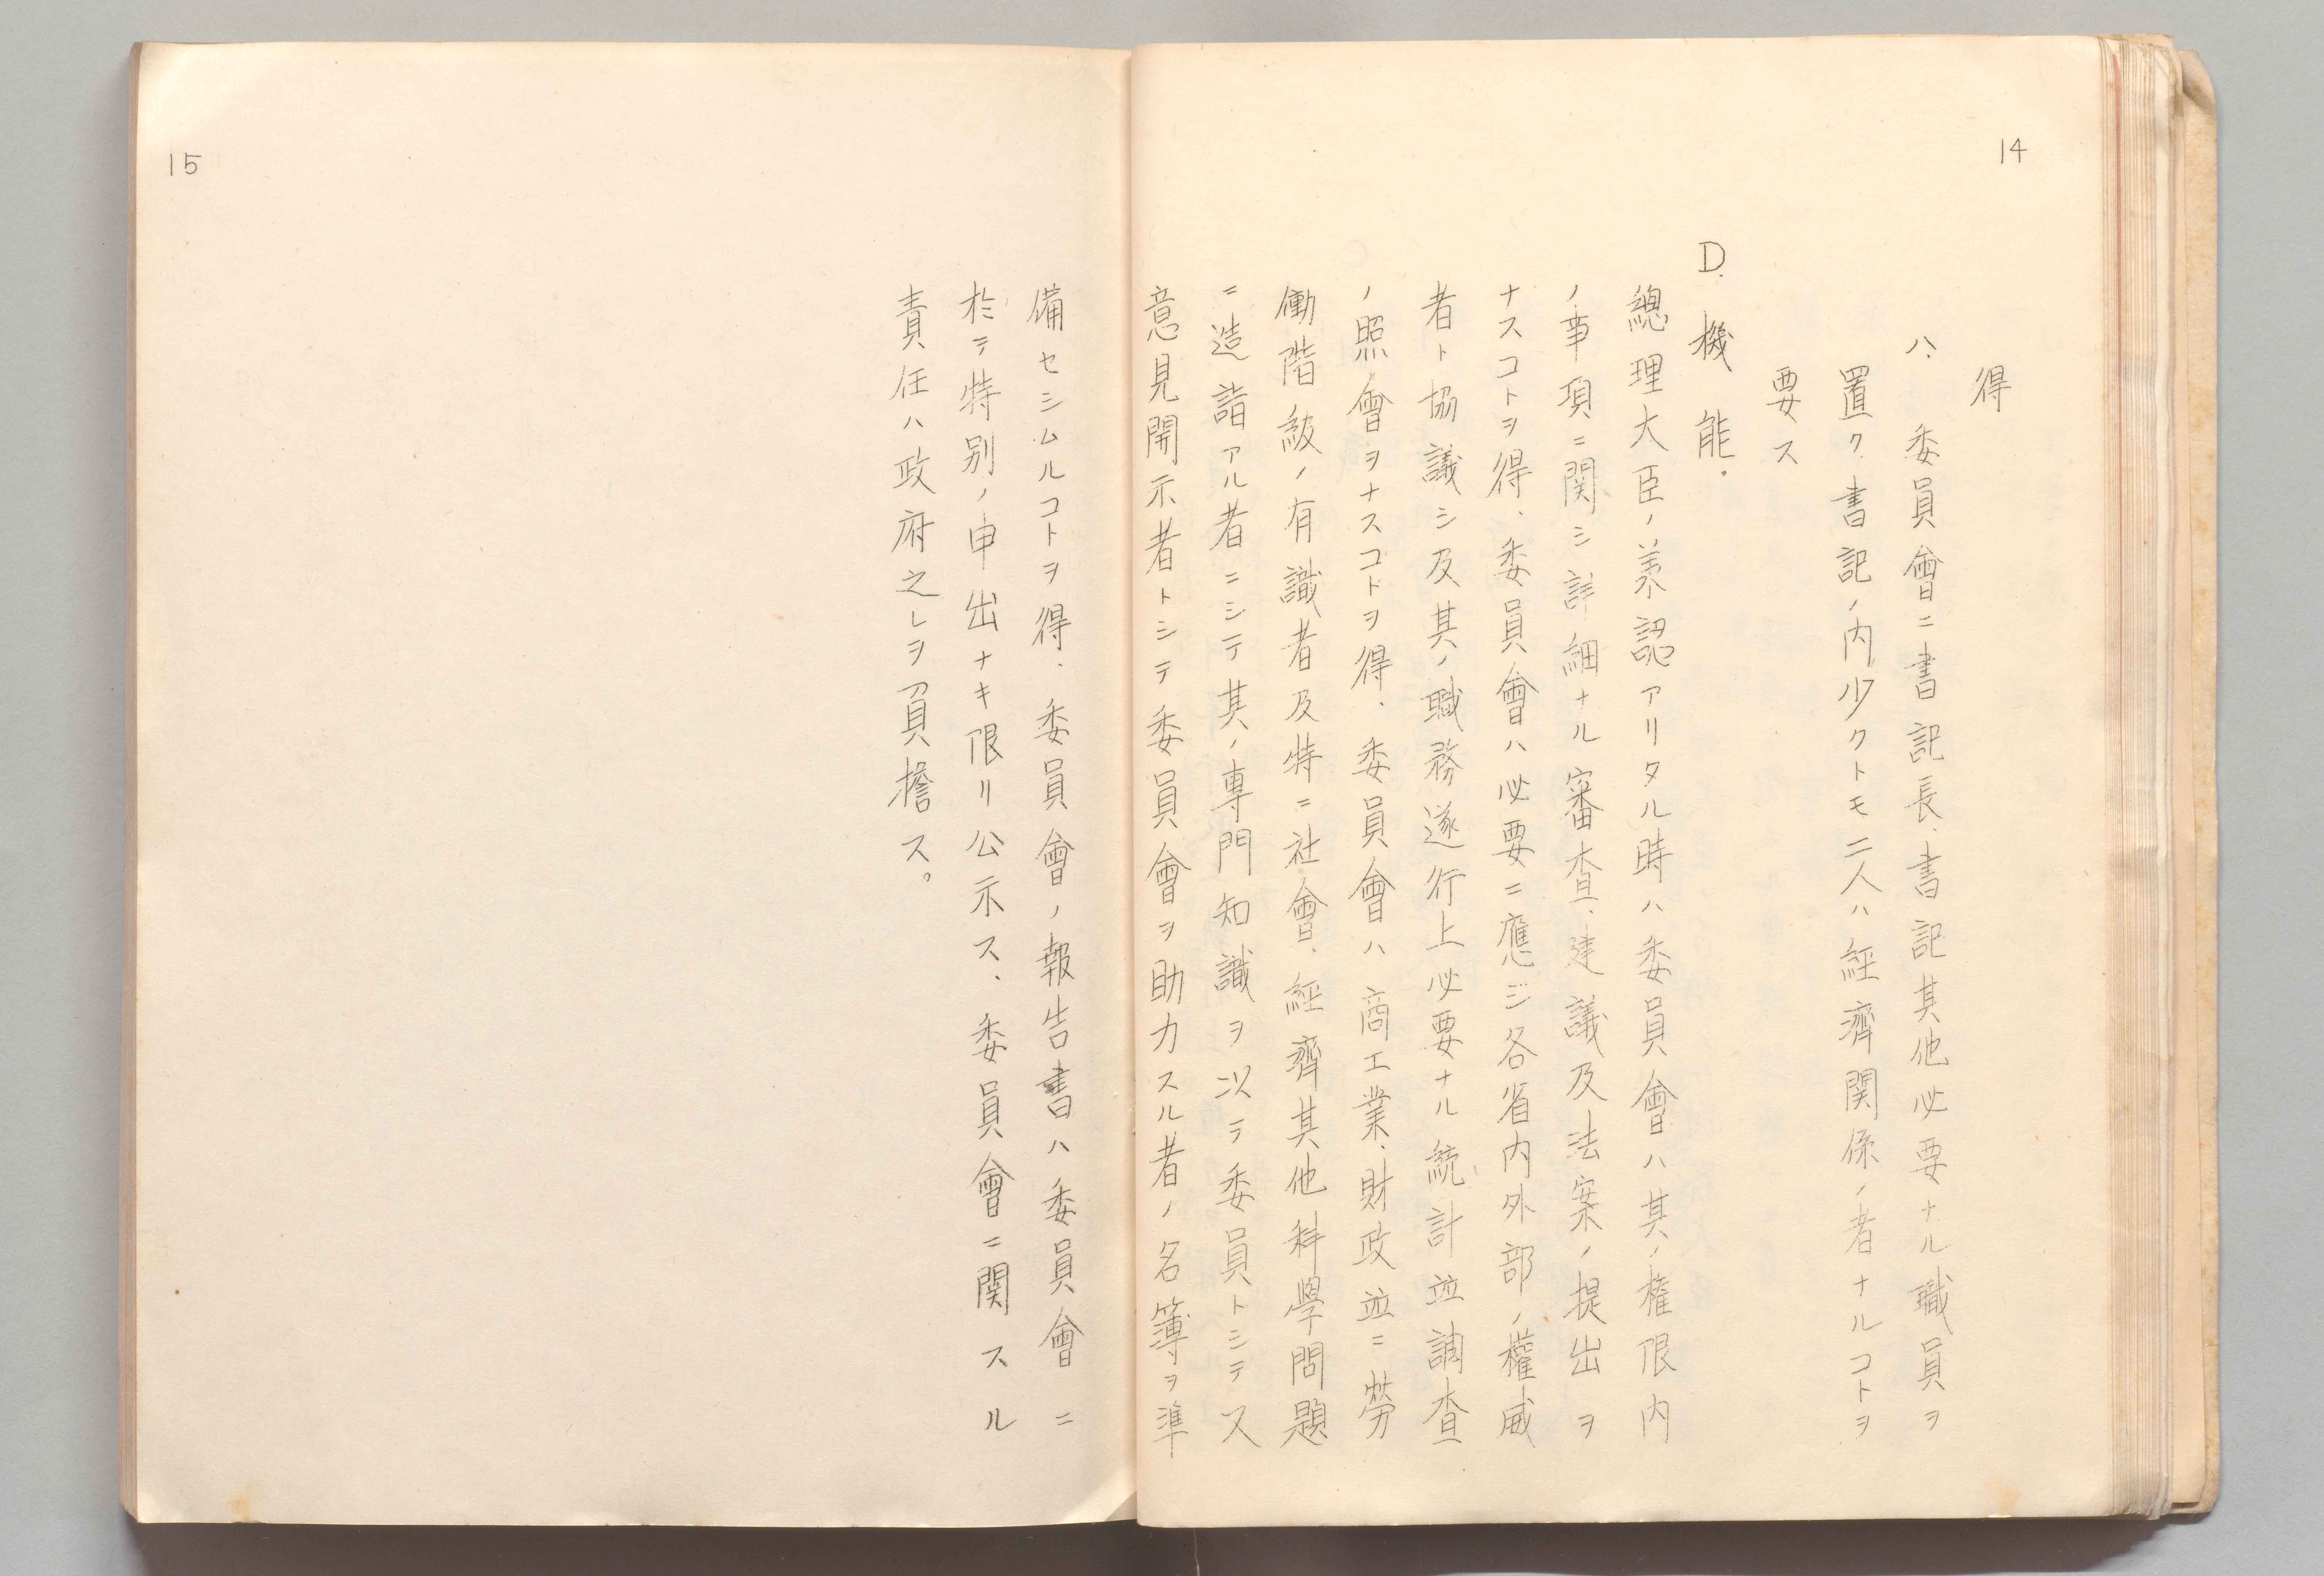 14
得
ハ、委員會ニ書記長、書記其他必要ナル職員ヲ
置ク、書記ノ内少クトモ二人ハ經濟関係ノ者ナルコトヲ
要ス
D. 機能。
總理大臣ノ羕認アリタル時ハ委員會ハ其ノ権限内
ノ事項ニ関シ詳細ナル審査、建議及法案ノ提出ヲ
ナスコトヲ得、委員會ハ必要ニ應ジ各省内外部ノ權威
者ト協議シ及其ノ職務遂行上必要ナル統計竝調査
ノ照會ヲナスコトヲ得、委員會ハ商工業、財政竝ニ勞
働階級ノ有識者及特ニ社會、經濟其他科學問題
ニ造詣アル者ニシテ其ノ專門知識ヲ以テ委員トシテ又
意見開示者トシテ委員會ヲ助力スル者ノ名簿ヲ準
15
備セシムルコトヲ得、委員會ノ報告書ハ委員會ニ
於テ特別ノ申出ナキ限リ公示ス、委員會ニ関スル
責任ハ政府之レヲ負擔ス。